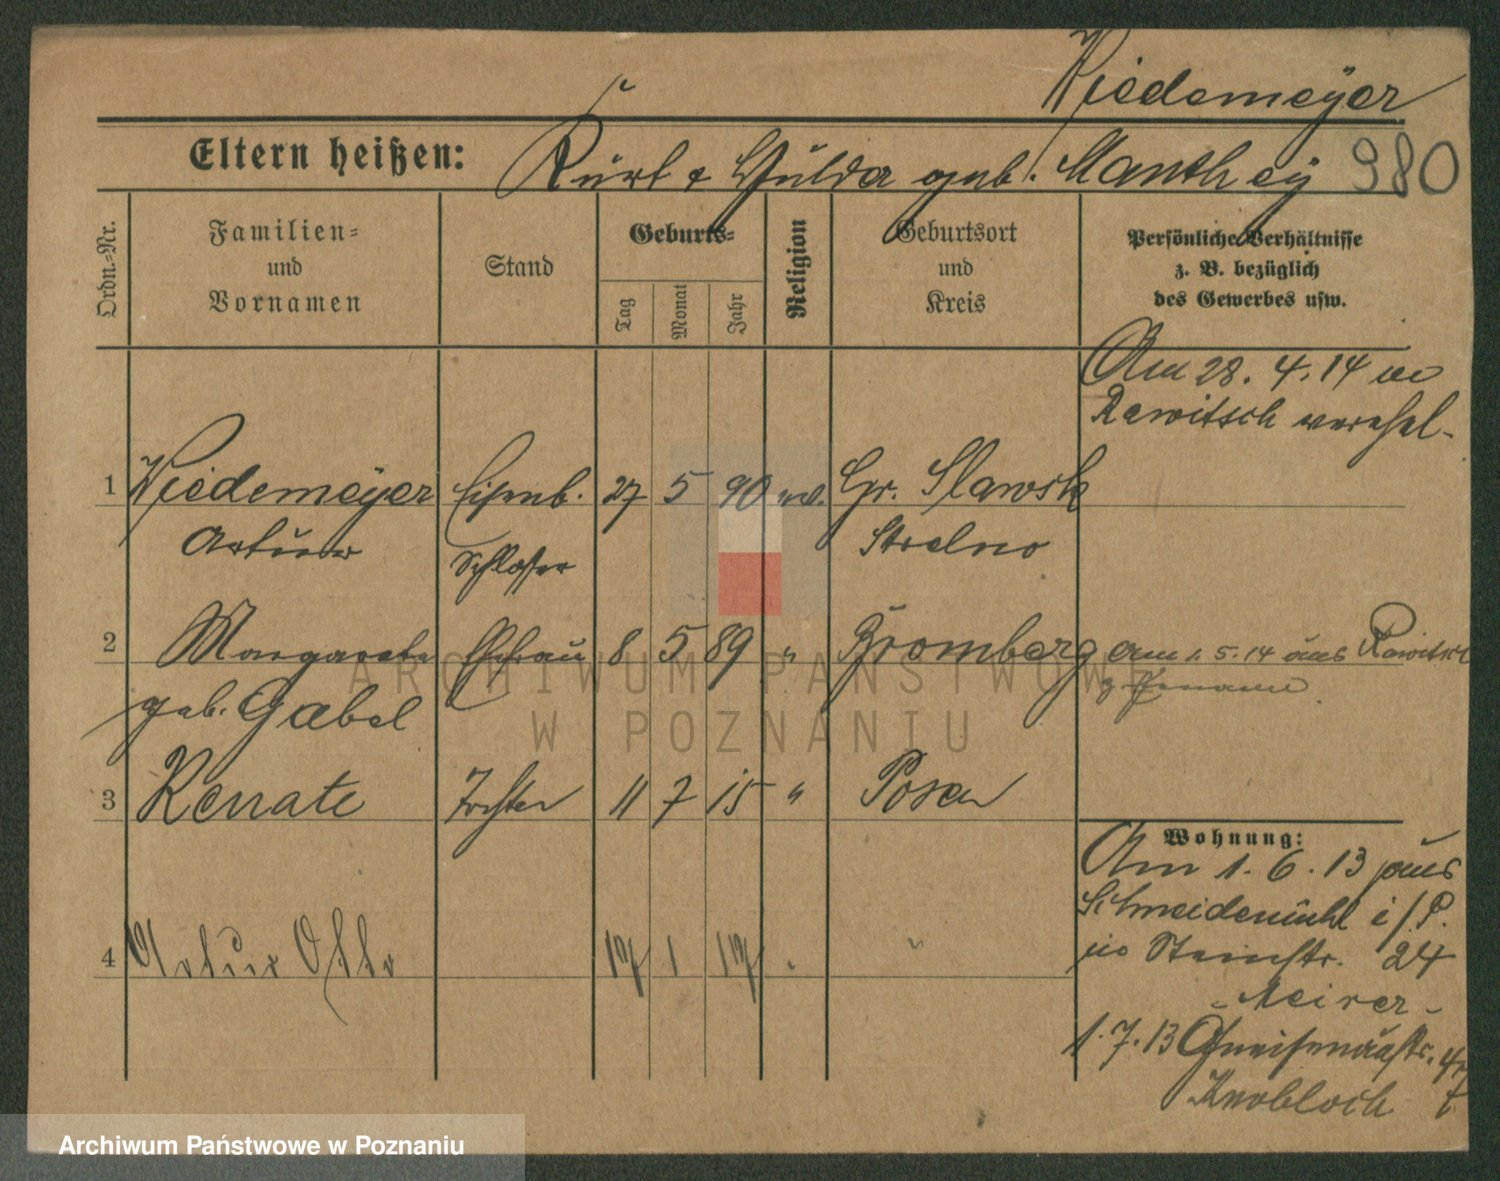 Wiedemeÿer
Eltern heißen: Kurt & Hulda geb. Manthey 980
Ordn.-Nr.
Familien-
und
Vornamen
Stand
Geburts-
Tag
Monat
Jahr
Religion
Geburtsort
und
Kreis
Persönliche Verhältnisse
z. B. bezüglich
des Gewerbes usw.
Am 28. 4. 14 in
Rawitsch verehel-
1 Wiedemeÿer Eisenb. 27 5 90 ev. Gr. Slawsk
Artur Schlosser Strelno
2 Margarete Ehefrau 8 5 89 " Bromberg am 1. 5. 14 aus Rawitsch
geb. Gäbel
3 Renate Tochter 11 7 15 " Posen
Wohnung:
Am 1. 6. 13 aus
Schneidemühl i/P.
in Steinstr. 24
4 Artur Otto 17 1 17 " "
1. 7. 13 Gneisenaustr.
Knobloch
ARCHIWUM PAŃSTWOWE
W POZNANIU
Archiwum Państwowe w Poznaniu